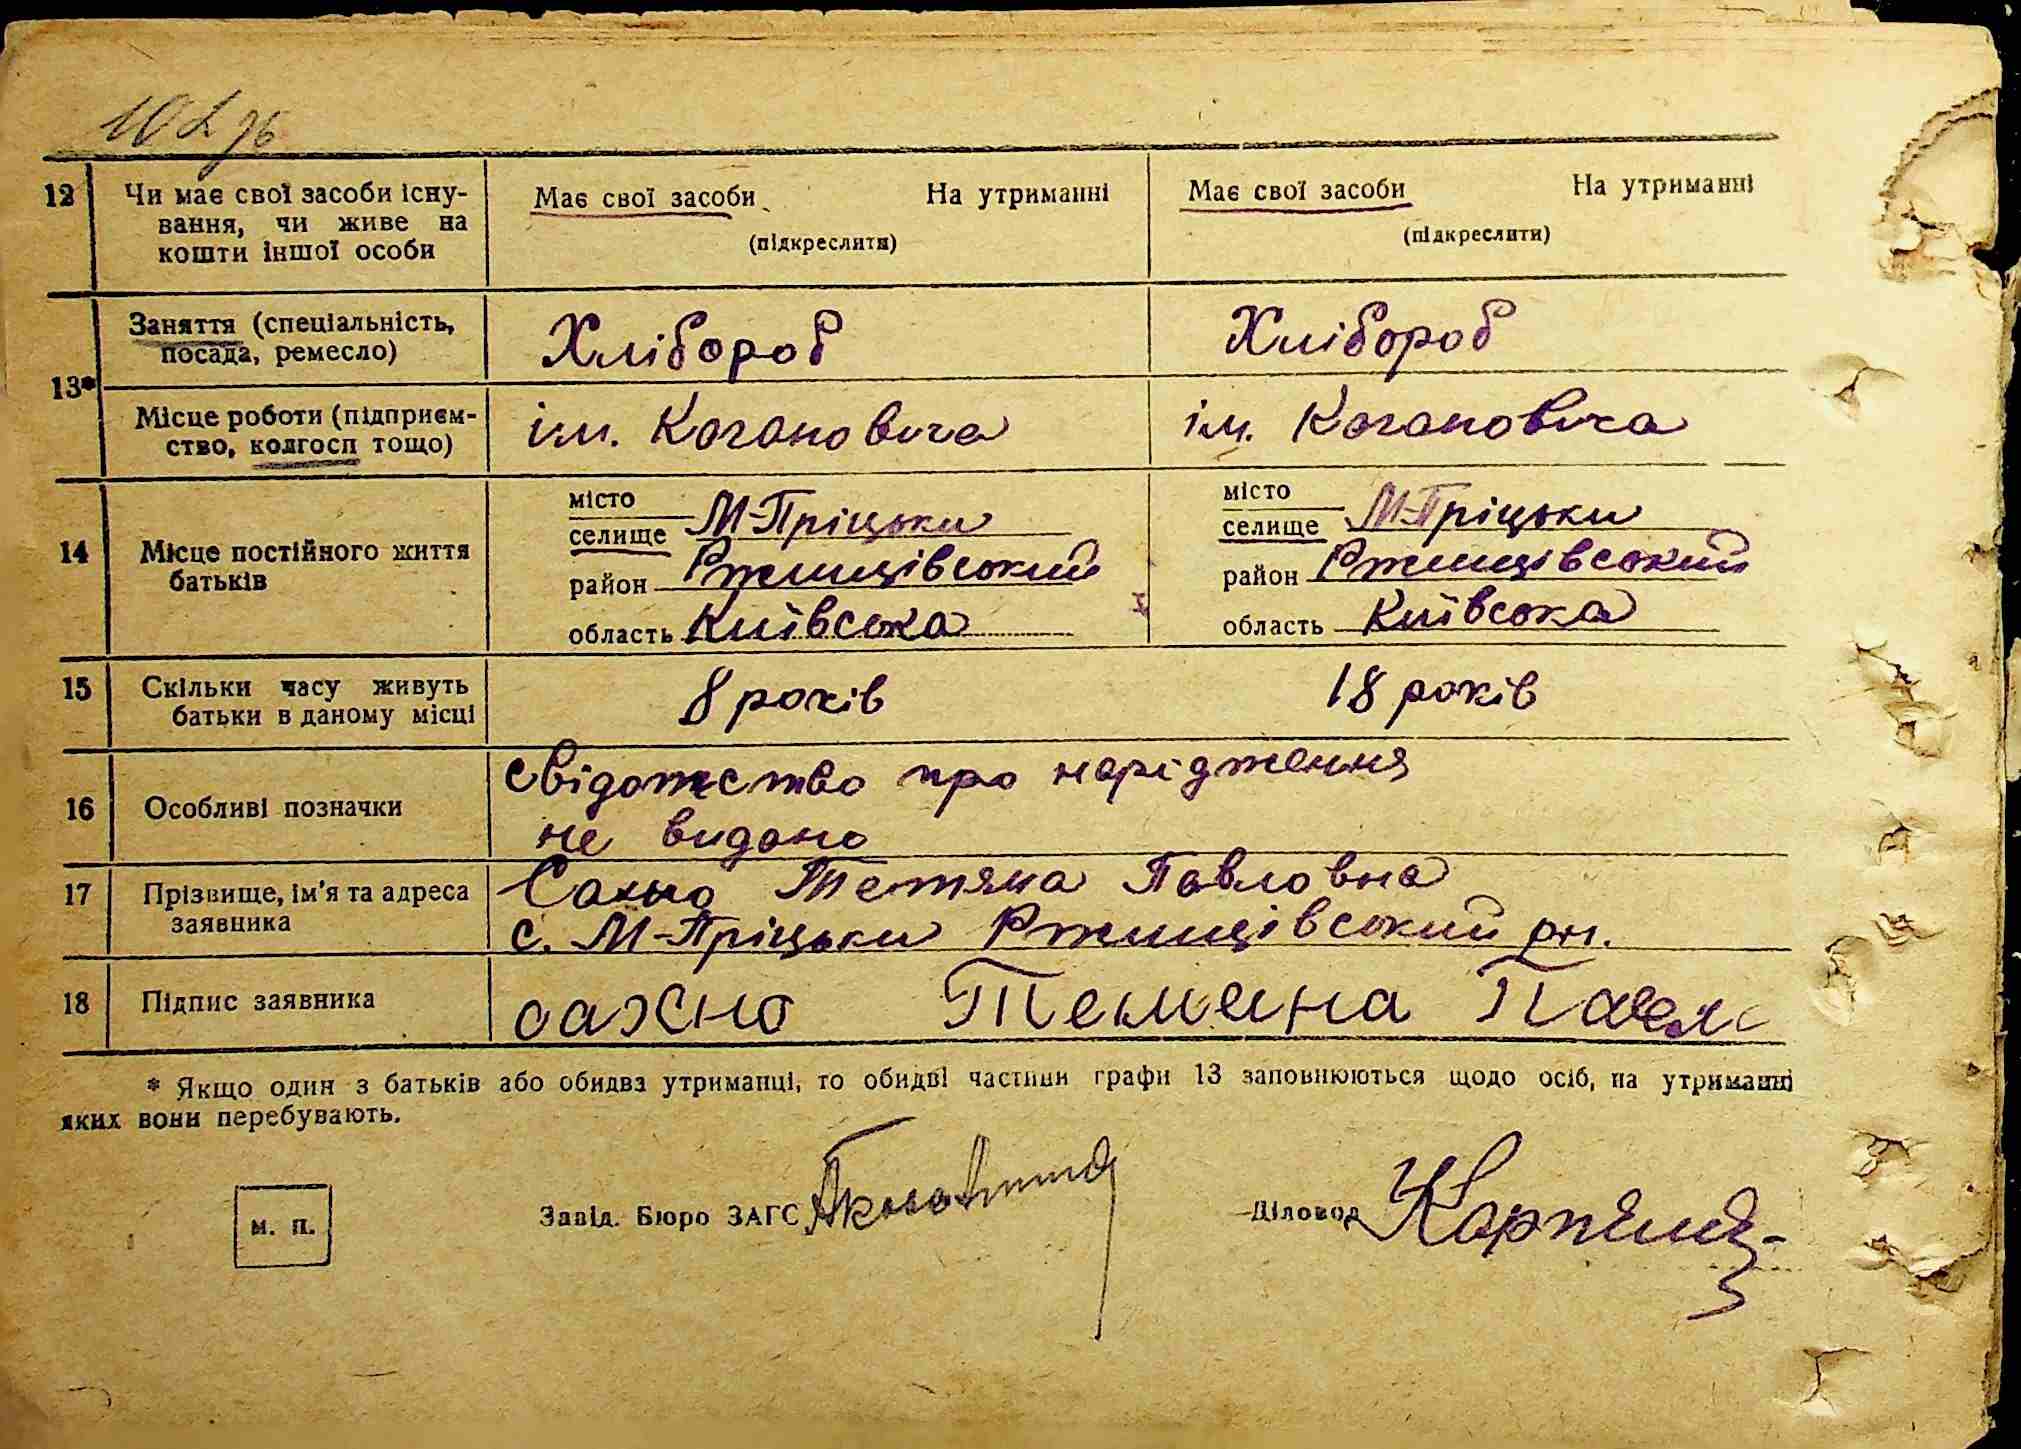 12 Чи має свої засоби існу-
вання, чи живе на
кошти іншої особи
Має свої засоби На утриманні
(підкреслити)
Має свої засоби На утриманні
(підкреслити)
13*
Заняття (спеціальність,
посада, ремесло)
Хлібороб
Хлібороб
Місце роботи (підприєм-
ство, колгосп тощо)
ім. Кагановича
ім. Кагановича
14 Місце постійного життя
батьків
місто
селище М-Пріцьки
район Ржищівський
область Київська
місто
селище М-Пріцьки
район Ржищівський
область Київська
15 Скільки часу живуть
батьки в даному місці
8 років
18 років
16 Особливі позначки
свідотство про нарідження
не видано
17 Прізвище, ім'я та адреса
заявника
Сахно Тетяна Павловна
с. М-Пріцьки Ржищівський рн.
18 Підпис заявника
сахно Тетяна Павл
* Якщо один з батьків або обидва утриманці, то обидві частини графи 13 заповнюються щодо осіб, на утриманні
яких вони перебувають.
м. п.
Завід. Бюро ЗАГС
Діловод